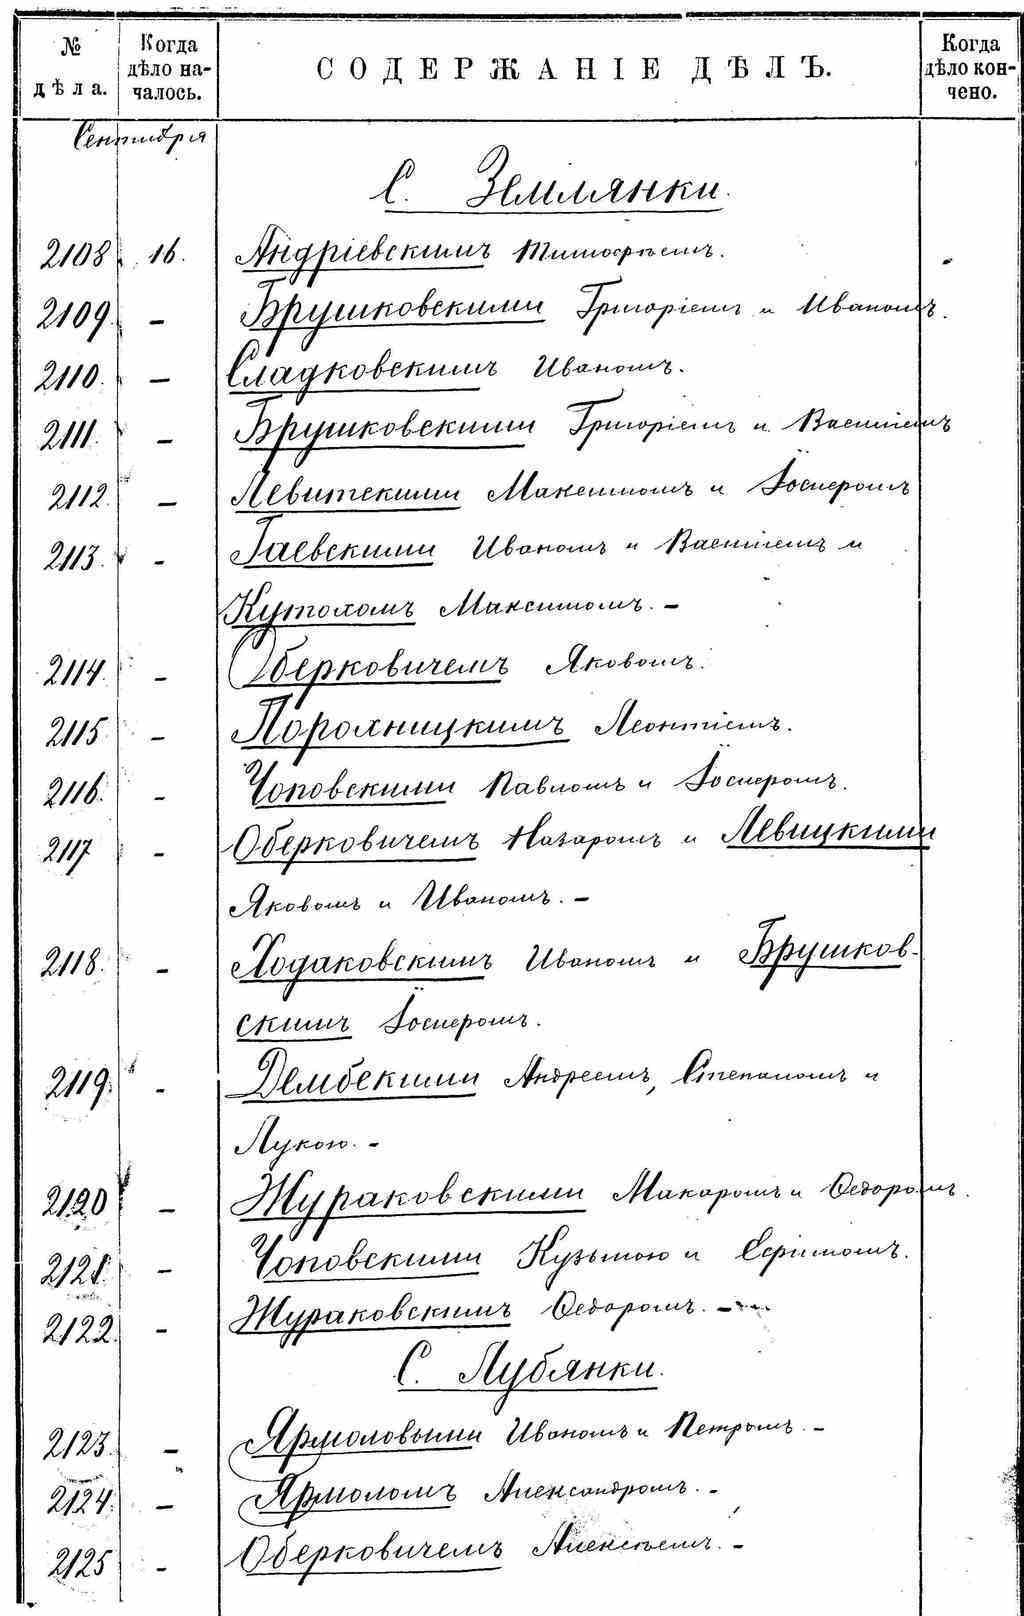 № дѣла. Когда дѣло началось. СОДЕРЖАНІЕ ДѢЛЪ. Когда дѣло кончено.
Сентября
С. Землянки.
2108 16. Андріевскимъ Тимофѣемъ.
2109. - Брушковскими Григоріемъ и Иваномъ.
2110. - Сладковскимъ Иваномъ.
2111. - Брушковскими Григоріемъ и Василіемъ
2112. - Левитскими Максимомъ и Іосифомъ
2113. - Гаевскими Иваномъ и Василіемъ и
Кутохомъ Максимомъ. -
2114. - Оберковичемъ Яковомъ.
2115 - Порохницкимъ Леонтіемъ.
2116. - Чоповскими Павломъ и Іосифомъ.
2117 - Оберковичемъ Назаромъ и Левицкими
Яковомъ и Иваномъ. -
2118. - Ходаковскимъ Иваномъ и Брушков-
скимъ Іосифомъ.
2119. - Дембскими Андреемъ, Степаномъ и
Лукою. -
2120 - Жураковскими Макаромъ и Ѳедоромъ.
2121. - Чоповскими Кузьмою и Ефимомъ.
2122. - Жураковскимъ Ѳедоромъ. -
С. Лубянки.
2123. - Ярмоловыми Иваномъ и Петромъ. -
2124. - Ярмоломъ Александромъ. -
2125 - Оберковичемъ Алексѣемъ. -